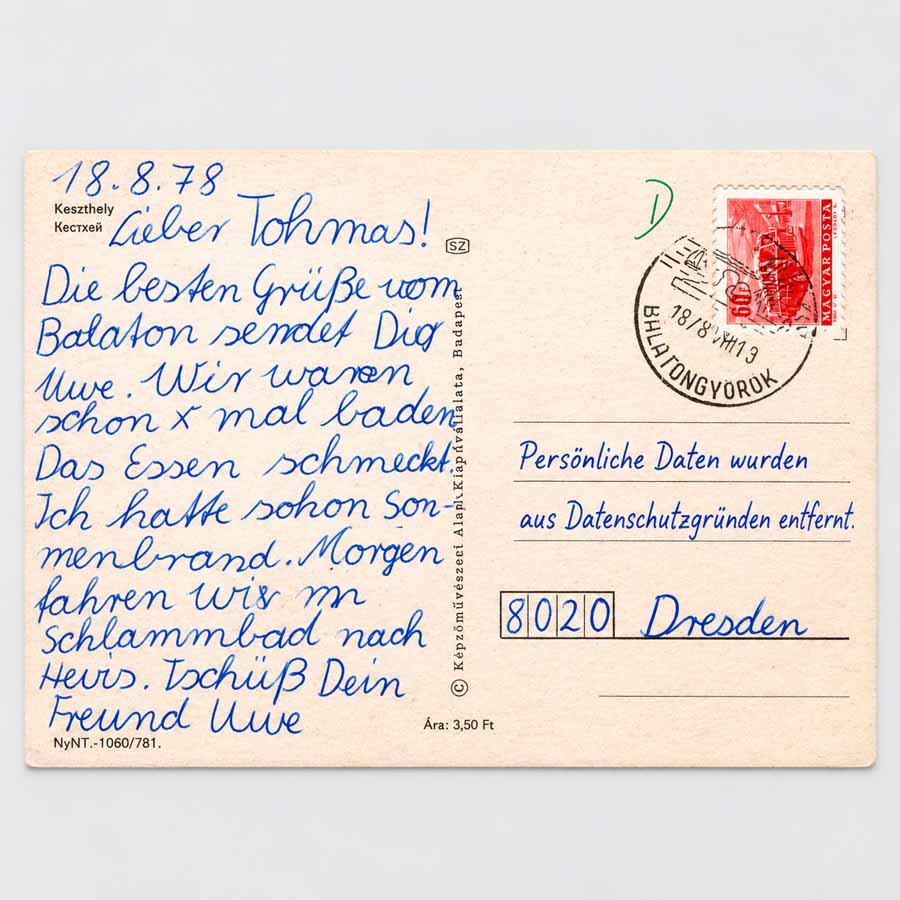 18.8.78
Keszthely
Кестхей
Lieber Tohmas!
SZ
Die besten Grüße vom
Balaton sendet Dig
Uwe. Wir waren
schon x mal baden
Das Essen schmeckt.
Ich hatte schon Son-
menbrand. Morgen
fahren wir
Schlammbad nach
Hevis. Tschüß Dein
Freund Uwe
NyNT.-1060/781.
Ára: 3,50 Ft
© Képzőművészeti Alap Kiadóvállalata, Budapest
D
60f
MAGYAR POSTA
BALATONGYÖRÖK
Persönliche Daten wurden
aus Datenschutzgründen entfernt.
8020 Dresden